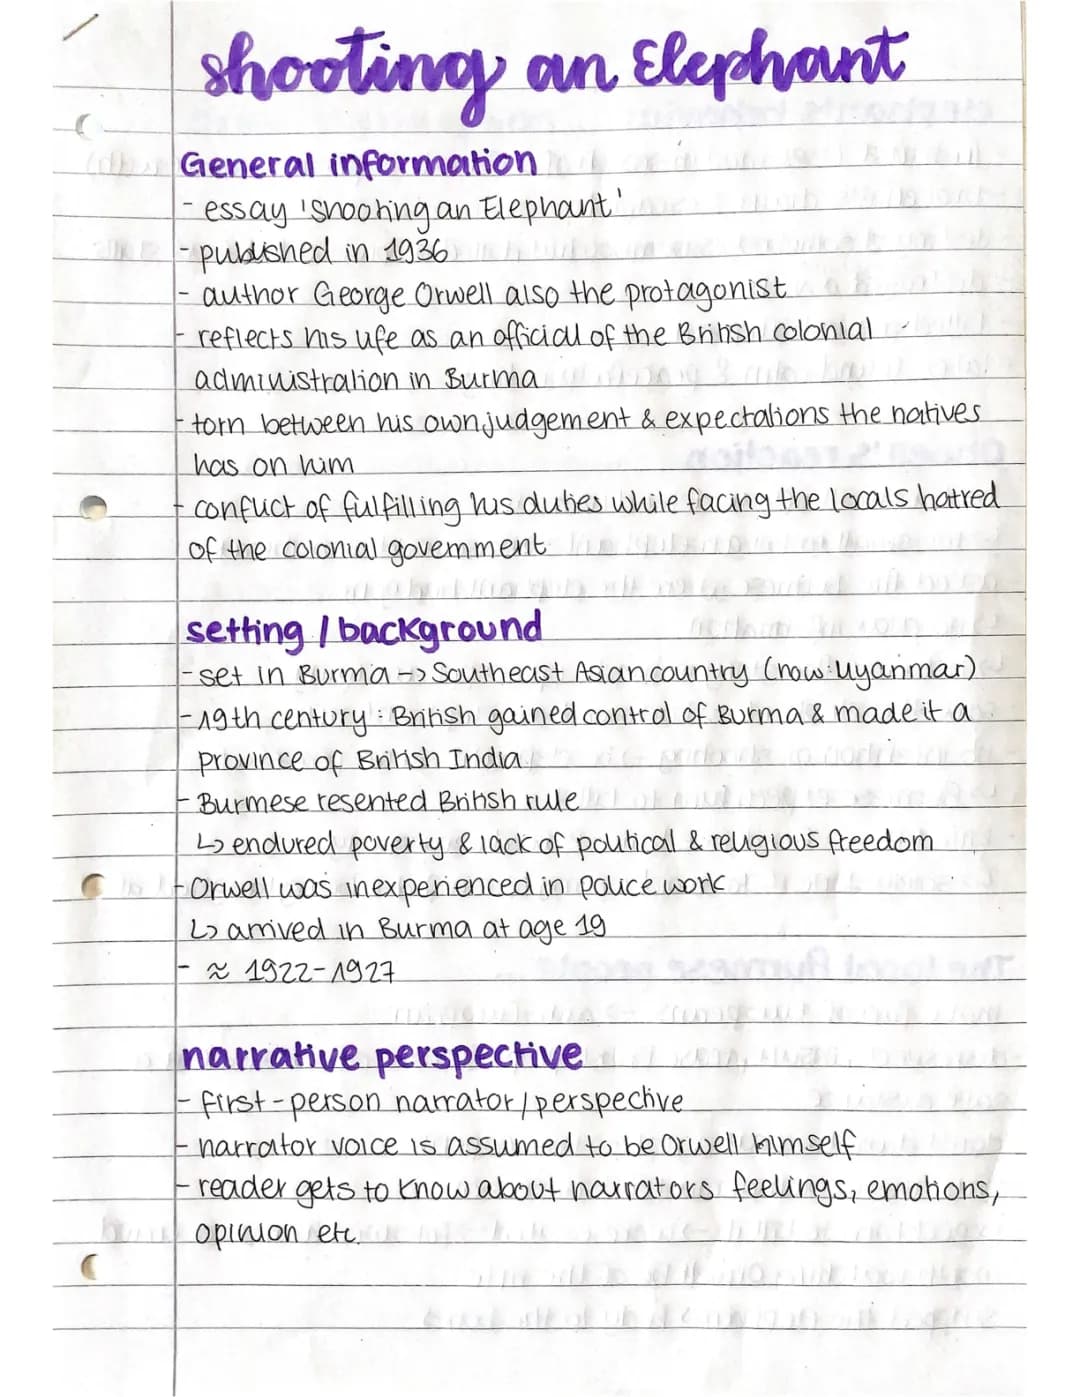 shooting an Elephant
General information
- essay 'Shooting an Elephant'
- published in 1936
- author George Orwell also the protagonist
- reflects his life as an official of the British colonial
administration in Burma
- torn between his own judgement & expectations the natives
has on him
- conflict of fulfilling his duties while facing the locals hatred
of the colonial government
setting / background
- set in Burma -> Southeast Asian country (now: Myanmar)
- 19th century: British gained control of Burma & made it a
province of British India
- Burmese resented British rule
↳ endured poverty & lack of political & religious freedom
- Orwell was inexperienced in police work
↳ arrived in Burma at age 19
- ≈ 1922-1927
narrative perspective
- first-person narrator/perspective
- narrator voice is assumed to be Orwell himself
- reader gets to know about narrators feelings, emotions,
opinion etc.